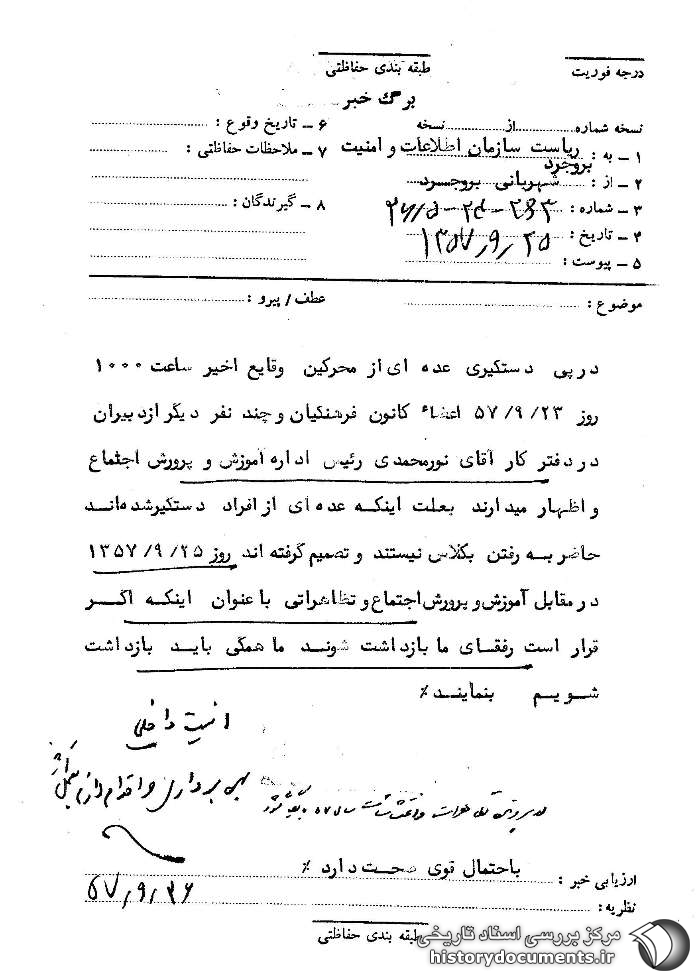 طبقه بندی حفاظتی
درجه فوریت
برگ خبر
نسخه شماره............از............نسخه
۱ ـ به : ریاست سازمان اطلاعات و امنیت بروجرد
۲ ـ از : شهربانی بروجرد
۳ ـ شماره :
۴ ـ تاریخ : ۱۳۵۷/۹/۲۵
۵ ـ پیوست :
۶ ـ تاریخ وقوع :
۷ ـ ملاحظات حفاظتی :
۸ ـ گیرندگان :
موضوع :
عطف / پیرو :
در پی دستگیری عده ای از محرکین وقایع اخیر ساعت ۱۰۰۰
روز ۵۷/۹/۲۳ اعضاء کانون فرهنگیان و چند نفر دیگر از دبیران
در دفتر کار آقای نورمحمدی رئیس اداره آموزش و پرورش اجتماع
و اظهار میدارند بعلت اینکه عده ای از افراد دستگیر شده‌اند
حاضر به رفتن بکلاس نیستند و تصمیم گرفته اند روز ۱۳۵۷/۹/۲۵
در مقابل آموزش و پرورش اجتماع و تظاهراتی با عنوان اینکه اگر
قرار است رفقای ما بازداشت شوند ما همگی باید بازداشت
شویم بنمایند٪
امنیت داخلی
بهره برداری و اقدام لازم
باحتمال قوی صحت دارد ٪
ارزیابی خبر :
نظریه :
۵۷/۹/۲۶
طبقه بندی حفاظتی
مرکز بررسی اسناد تاریخی
historydocuments.ir